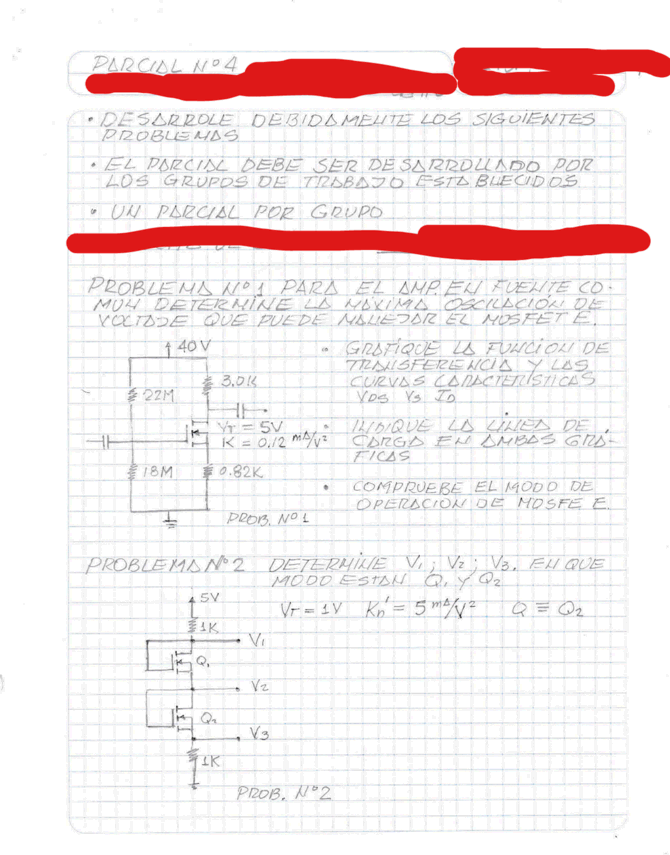 PARCIAL Nº4
• DESARROLE DEBIDAMENTE LOS SIGUIENTES
PROBLEMAS
• EL PARCIAL DEBE SER DESARROLLADO POR
LOS GRUPOS DE TRABAJO ESTABLECIDOS
• UN PARCIAL POR GRUPO
PROBLEMA Nº1 PARA EL AMP. EN FUENTE CO-
MUN DETERMINE LA MÁXIMA OSCILACIÓN DE
VOLTAJE QUE PUEDE MANEJAR EL MOSFET E.
40V
22M
3.01K
VT = 5V
K = 0.12 mA/V²
18M
0.82K
PROB. Nº1
• GRAFIQUE LA FUNCION DE
TRANSFERENCIA Y LAS
CURVAS CARACTERÍSTICAS
VDS VS ID
• INDIQUE LA LINEA DE
CARGA EN AMBAS GRÁ-
FICAS
• COMPRUEBE EL MODO DE
OPERACION DE MOSFE E.
PROBLEMA Nº2 DETERMINE V1; V2; V3. EN QUE
MODO ESTAN Q1 Y Q2
VT = 1V Kn' = 5 mA/V² Q ≡ Q2
5V
1K
V1
Q1
V2
Q2
V3
1K
PROB. Nº2